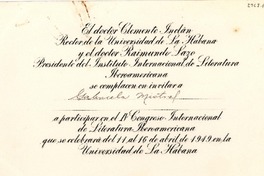 El doctor Clemente Inclán
Rector de la Universidad de La Habana
y el doctor Raimundo Lazo
Presidente del Instituto Internacional de Literatura
Iberoamericana
se complacen en invitar a
Gabriela Mistral
a participar en el IV Congreso Internacional
de Literatura Iberoamericana
que se celebrará del 11 al 16 de abril de 1949 en la
Universidad de La Habana